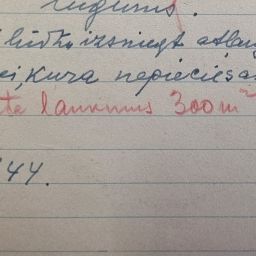 lūgums.
lūdzu izsniegt atļau
ei, kura nepieciesa
laukums 300 m²
44.